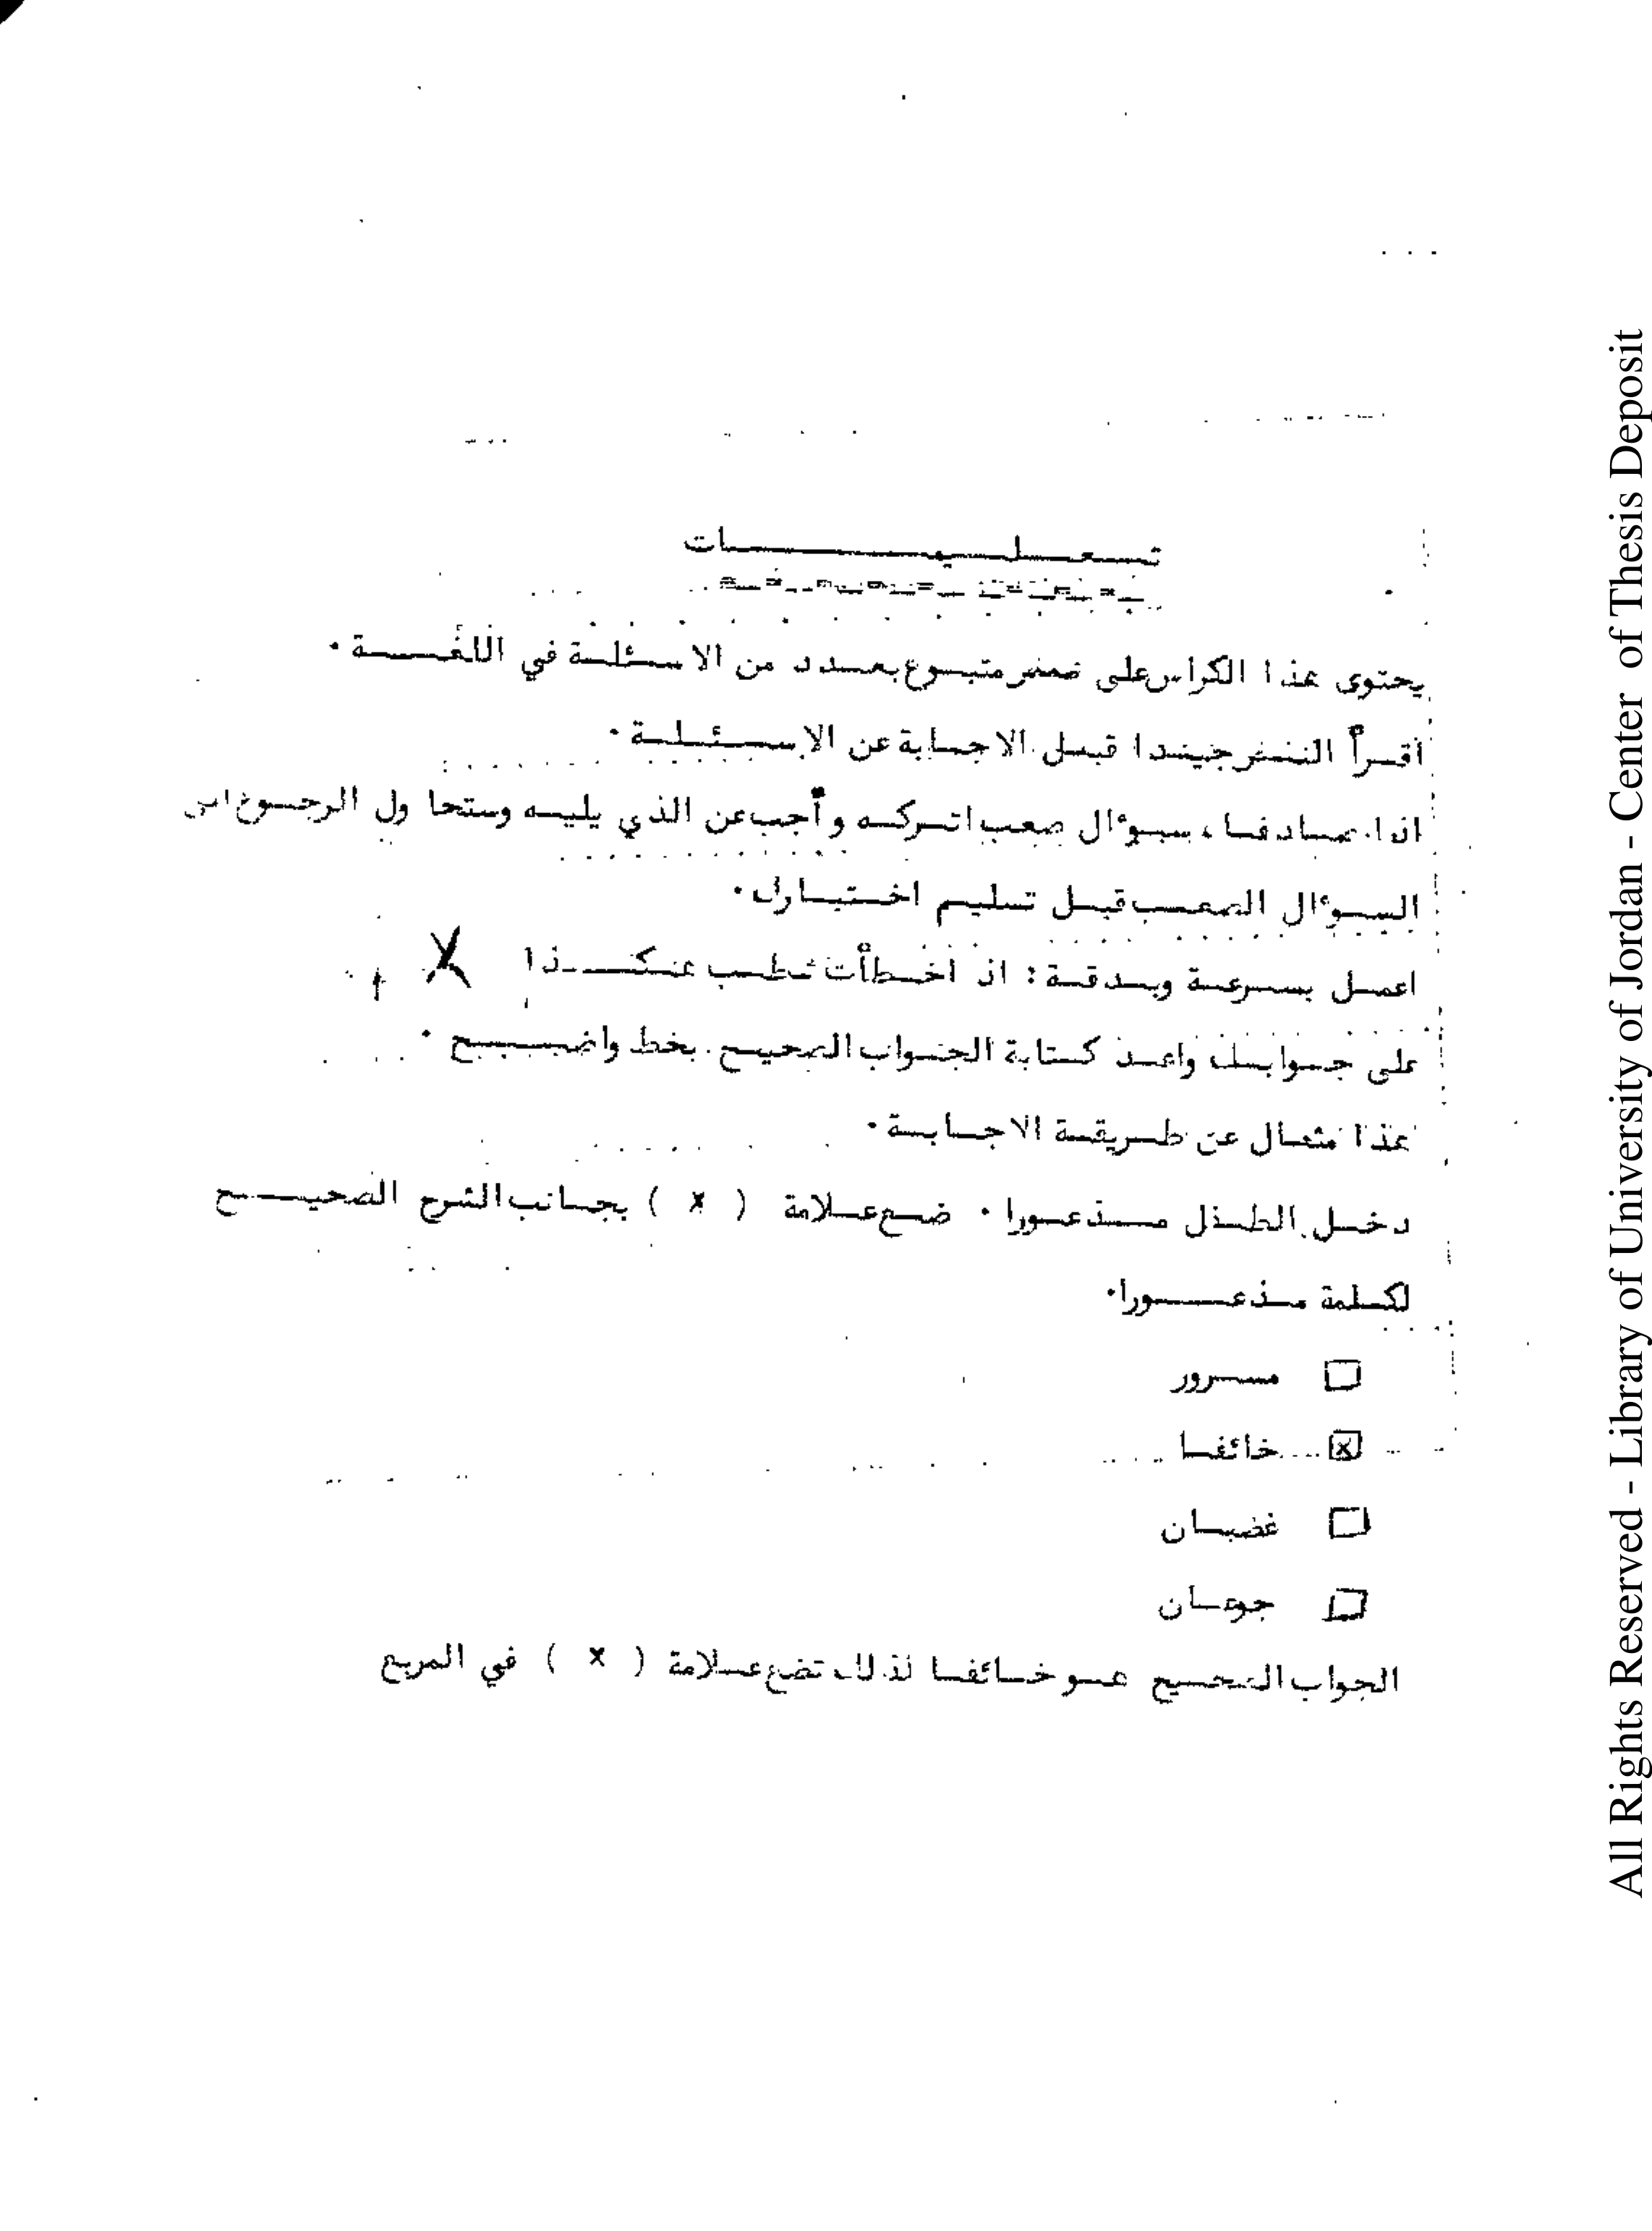 تعليمات
يحتوى هذا الكراس على نص متبوع بعدد من الاسئلة في اللغة .
اقرأ النص جيدا قبل الاجابة عن الاسئلة .
اذا صادفك سؤال صعب اتركه وأجب عن الذي يليه وستحاول الرجوع الى
السؤال الصعب قبل تسليم اختبارك .
اعمل بسرعة وبدقة : اذ اخطأت شطب هكذا X
على جوابك واعد كتابة الجواب الصحيح بخط واضح .
هذا مثال عن طريقة الاجابة .
دخل الطفل مذعورا . ضع علامة ( x ) بجانب الشرح الصحيح
لكلمة مذعورا .
☐ مسرور
☒ خائفا
☐ غضبان
☐ جوعان
الجواب الصحيح هو خائفا لذلك تضع علامة ( x ) في المربع
All Rights Reserved - Library of University of Jordan - Center of Thesis Deposit